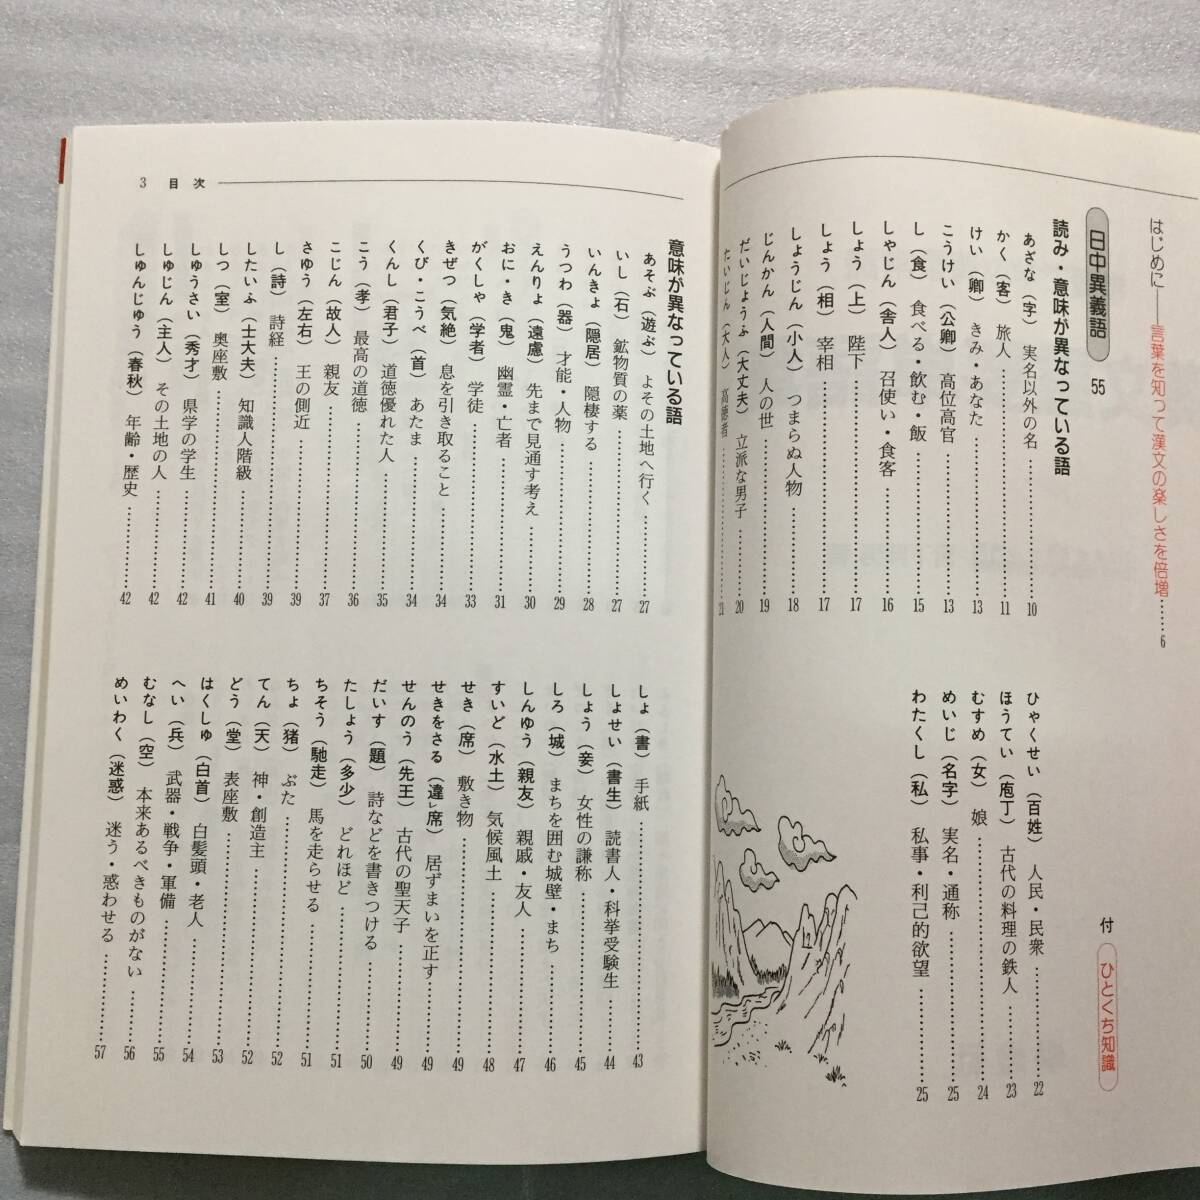 はじめに──言葉を知って漢文の楽しさを倍増……6
日中異義語 55
付 ひとくち知識
読み・意味が異なっている語
あざな（字） 実名以外の名……10
かく（客） 旅人……11
けい（卿） きみ・あなた……13
こうけい（公卿） 高位高官……13
し（食） 食べる・飲む・飯……15
しゃじん（舎人） 召使い・食客……16
しょう（上） 陛下……17
しょう（相） 宰相……17
しょうじん（小人） つまらぬ人物……18
じんかん（人間） 人の世……19
だいじょうふ（大丈夫） 立派な男子……20
たいじん（大人） 高徳者……21
ひゃくせい（百姓） 人民・民衆……22
ほうてい（庖丁） 古代の料理の鉄人……23
むすめ（女） 娘……24
めいじ（名字） 実名・通称……25
わたくし（私） 私事・利己的欲望……25
3 目次
意味が異なっている語
あそぶ（遊ぶ） よその土地へ行く……27
いし（石） 鉱物質の薬……27
いんきょ（隠居） 隠棲する……28
うつわ（器） 才能・人物……29
えんりょ（遠慮） 先まで見通す考え……30
おに・き（鬼） 幽霊・亡者……31
がくしゃ（学者） 学徒……33
きぜつ（気絶） 息を引き取ること……34
くび・こうべ（首） あたま……34
くんし（君子） 道徳優れた人……35
こう（孝） 最高の道徳……36
こじん（故人） 親友……37
さゆう（左右） 王の側近……39
し（詩） 詩経……39
したいふ（士大夫） 知識人階級……40
しつ（室） 奥座敷……41
しゅうさい（秀才） 県学の学生……42
しゅじん（主人） その土地の人……42
しゅんじゅう（春秋） 年齢・歴史……42
しょ（書） 手紙……43
しょせい（書生） 読書人・科挙受験生……44
しょう（妾） 女性の謙称……45
しろ（城） まちを囲む城壁・まち……46
しんゆう（親友） 親戚・友人……47
すいど（水土） 気候風土……48
せき（席） 敷き物……49
せきをさる（違レ席） 居ずまいを正す……49
せんのう（先王） 古代の聖天子……49
だいす（題） 詩などを書きつける……50
たしょう（多少） どれほど……51
ちそう（馳走） 馬を走らせる……51
ちょ（猪） ぶた……52
てん（天） 神・創造主……52
どう（堂） 表座敷……53
はくしゅ（白首） 白髪頭・老人……54
へい（兵） 武器・戦争・軍備……55
むなし（空） 本来あるべきものがない……56
めいわく（迷惑） 迷う・惑わせる……57